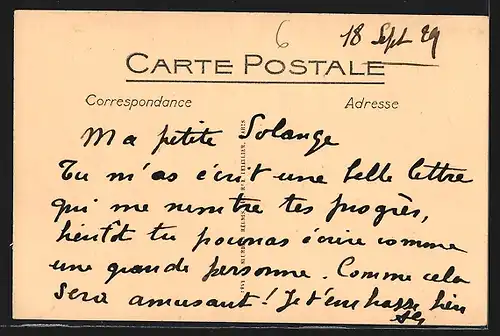 6
18 Sept 29
CARTE POSTALE
Correspondance
Adresse
Ma petite Solange
Tu m'as écrit une belle lettre
qui me montre tes progrès,
bientôt tu pourras écrire comme
une grande personne. Comme cela
sera amusant! Je t'embrasse bien